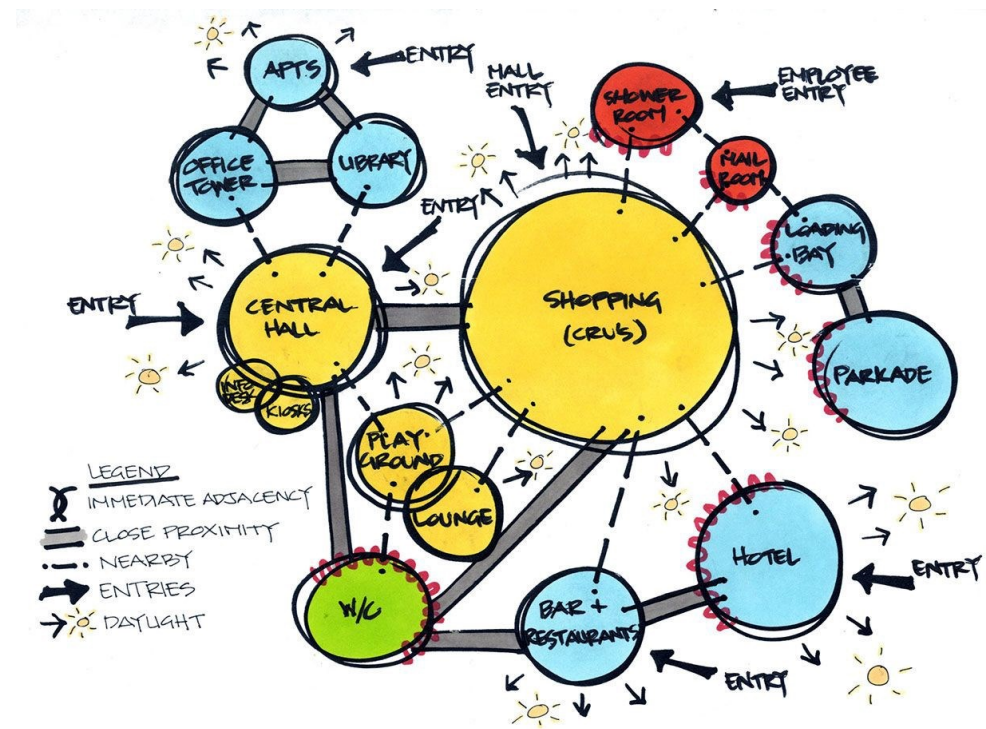 APTS
ENTRY
MALL
ENTRY
SHOWER
ROOM
EMPLOYEE
ENTRY
OFFICE
TOWER
LIBRARY
MAIL
ROOM
ENTRY
LOADING
BAY
ENTRY
CENTRAL
HALL
SHOPPING
(CRU'S)
INFO
DESK
KIOSKS
PARKADE
PLAY
GROUND
LOUNGE
LEGEND
IMMEDIATE ADJACENCY
CLOSE PROXIMITY
NEARBY
ENTRIES
DAYLIGHT
W/C
BAR +
RESTAURANTS
HOTEL
ENTRY
ENTRY